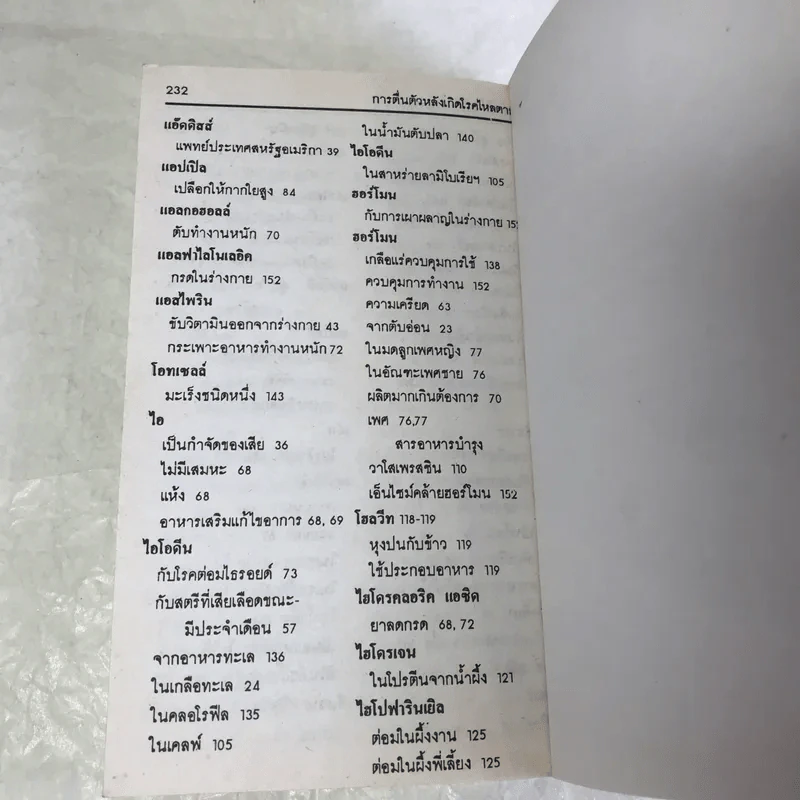 232
การตื่นตัวหลังเกิดโรคไหลตาย
แอ๊ดดิสส์
แพทย์ประเทศสหรัฐอเมริกา 39
แอปเปิล
เปลือกให้กากใยสูง 84
แอลกอฮอลล์
ตับทำงานหนัก 70
แอลฟาไลโนเลอิค
กรดในร่างกาย 152
แอสไพริน
ขับวิตามินออกจากร่างกาย 43
กระเพาะอาหารทำงานหนัก 72
โอทเซลล์
มะเร็งชนิดหนึ่ง 143
ไอ
เป็นกำจัดของเสีย 36
ไม่มีเสมหะ 68
แห้ง 68
อาหารเสริมแก้ไขอาการ 68, 69
ไอโอดีน
กับโรคต่อมไธรอยด์ 73
กับสตรีที่เสียเลือดขณะ-
มีประจำเดือน 57
จากอาหารทะเล 136
ในเกลือทะเล 24
ในคลอโรฟีล 135
ในเคลพ์ 105
ในน้ำมันตับปลา 140
ไอโอดีน
ในสาหร่ายลามิโบเรียฯ 105
ฮอร์โมน
กับการเผาผลาญในร่างกาย
ฮอร์โมน
เกลือแร่ควบคุมการใช้ 138
ควบคุมการทำงาน 152
ความเครียด 63
จากตับอ่อน 23
ในมดลูกเพศหญิง 77
ในอัณฑะเพศชาย 76
ผลิตมากเกินต้องการ 70
เพศ 76,77
สารอาหารบำรุง
วาโสเพรสซิน 110
เอ็นไซม์คล้ายฮอร์โมน 152
โฮลวีท 118-119
หุงปนกับข้าว 119
ใช้ประกอบอาหาร 119
ไฮโดรคลอริค แอซิด
ยาลดกรด 68, 72
ไฮโดรเจน
ในโปรตีนจากน้ำผึ้ง 121
ไฮโปฟารินเยิล
ต่อมในผึ้งงาน 125
ต่อมในผึ้งพี่เลี้ยง 125